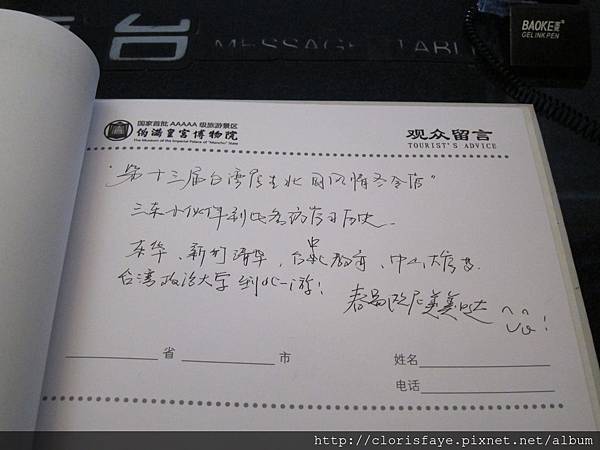 台
MESSAGE TABLE
BAOKE
GELINK PEN
国家首批 AAAAA 级旅游景区
伪满皇宫博物院
The Museum of the Imperial Palace of "Manchu" State
观众留言
TOURIST'S ADVICE
"第十三届台湾 东北 风情冬令营"
三 到此 历史
东华、新竹清华、台中教育、中山大
台湾政治大学到此一游!
省 市
姓名
电话
http://clorisfaye.pixnet.net/album